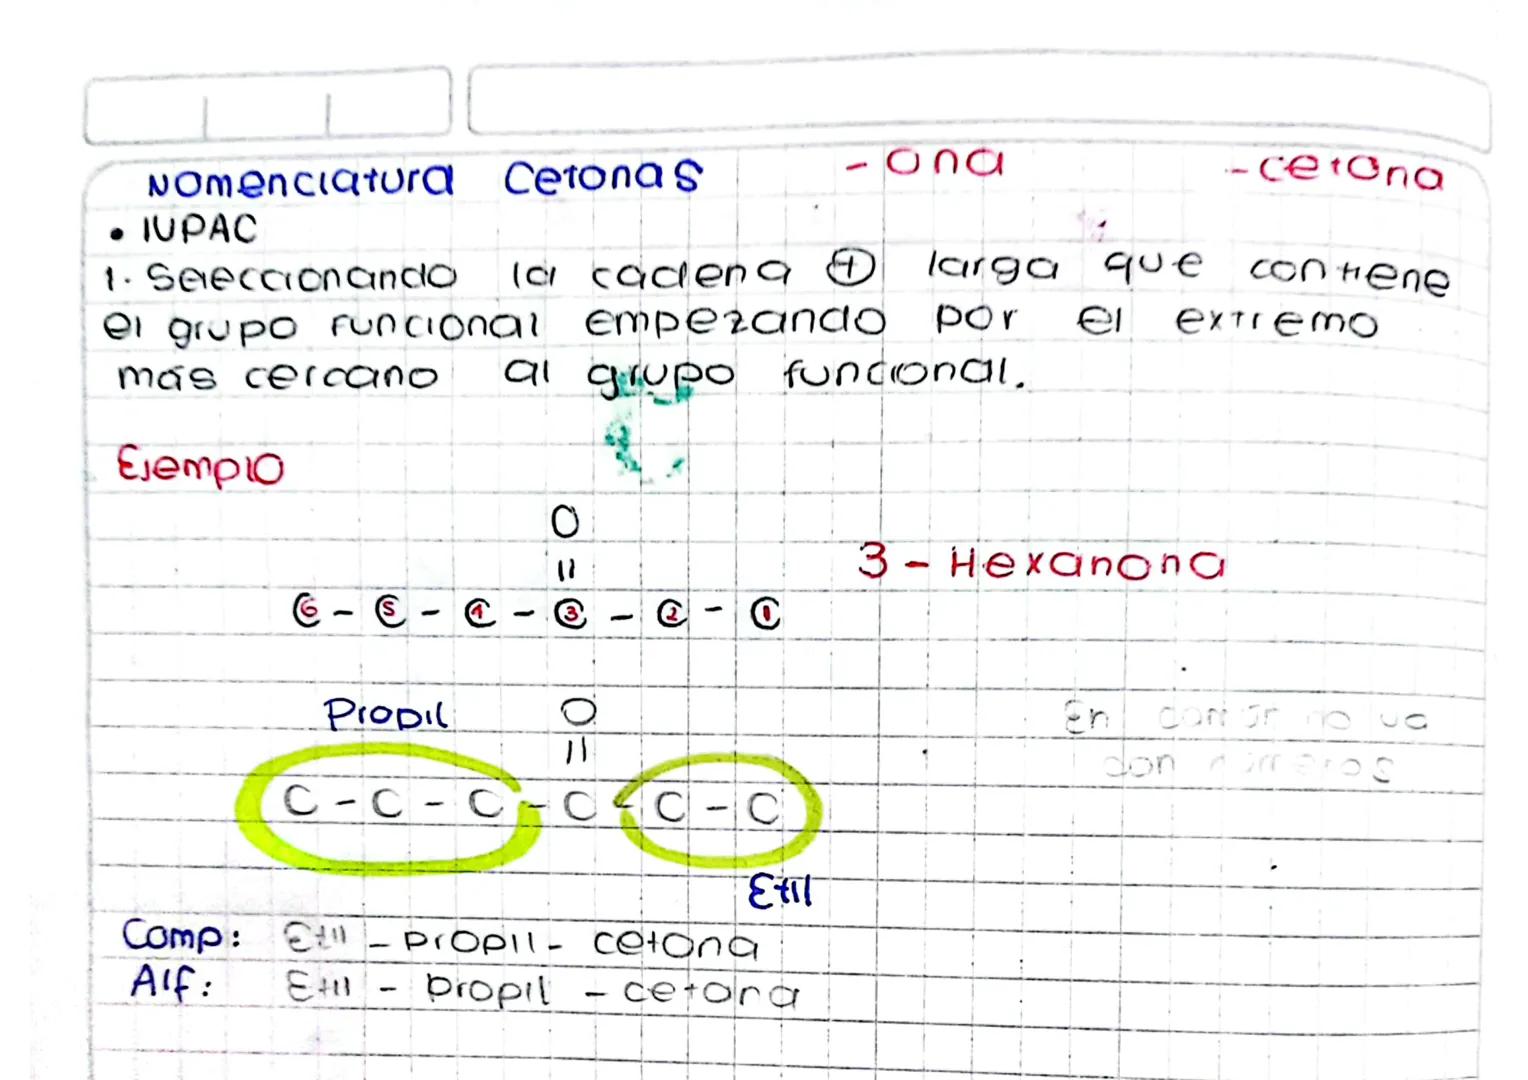 Nomenclatura Cetonas -ona -cetona
• IUPAC
1. Seleccionando la cadena ⊕ larga que contiene
el grupo funcional empezando por el extremo
más cercano al grupo funcional.
Ejemplo
O
||
C6 - C5 - C4 - C3 - C2 - C1
3 - Hexanona
Propil
O
||
C - C - C - C - C - C
En común no va
con números
Etil
Comp: Etil - propil - cetona
Alf: Etil - propil - cetona